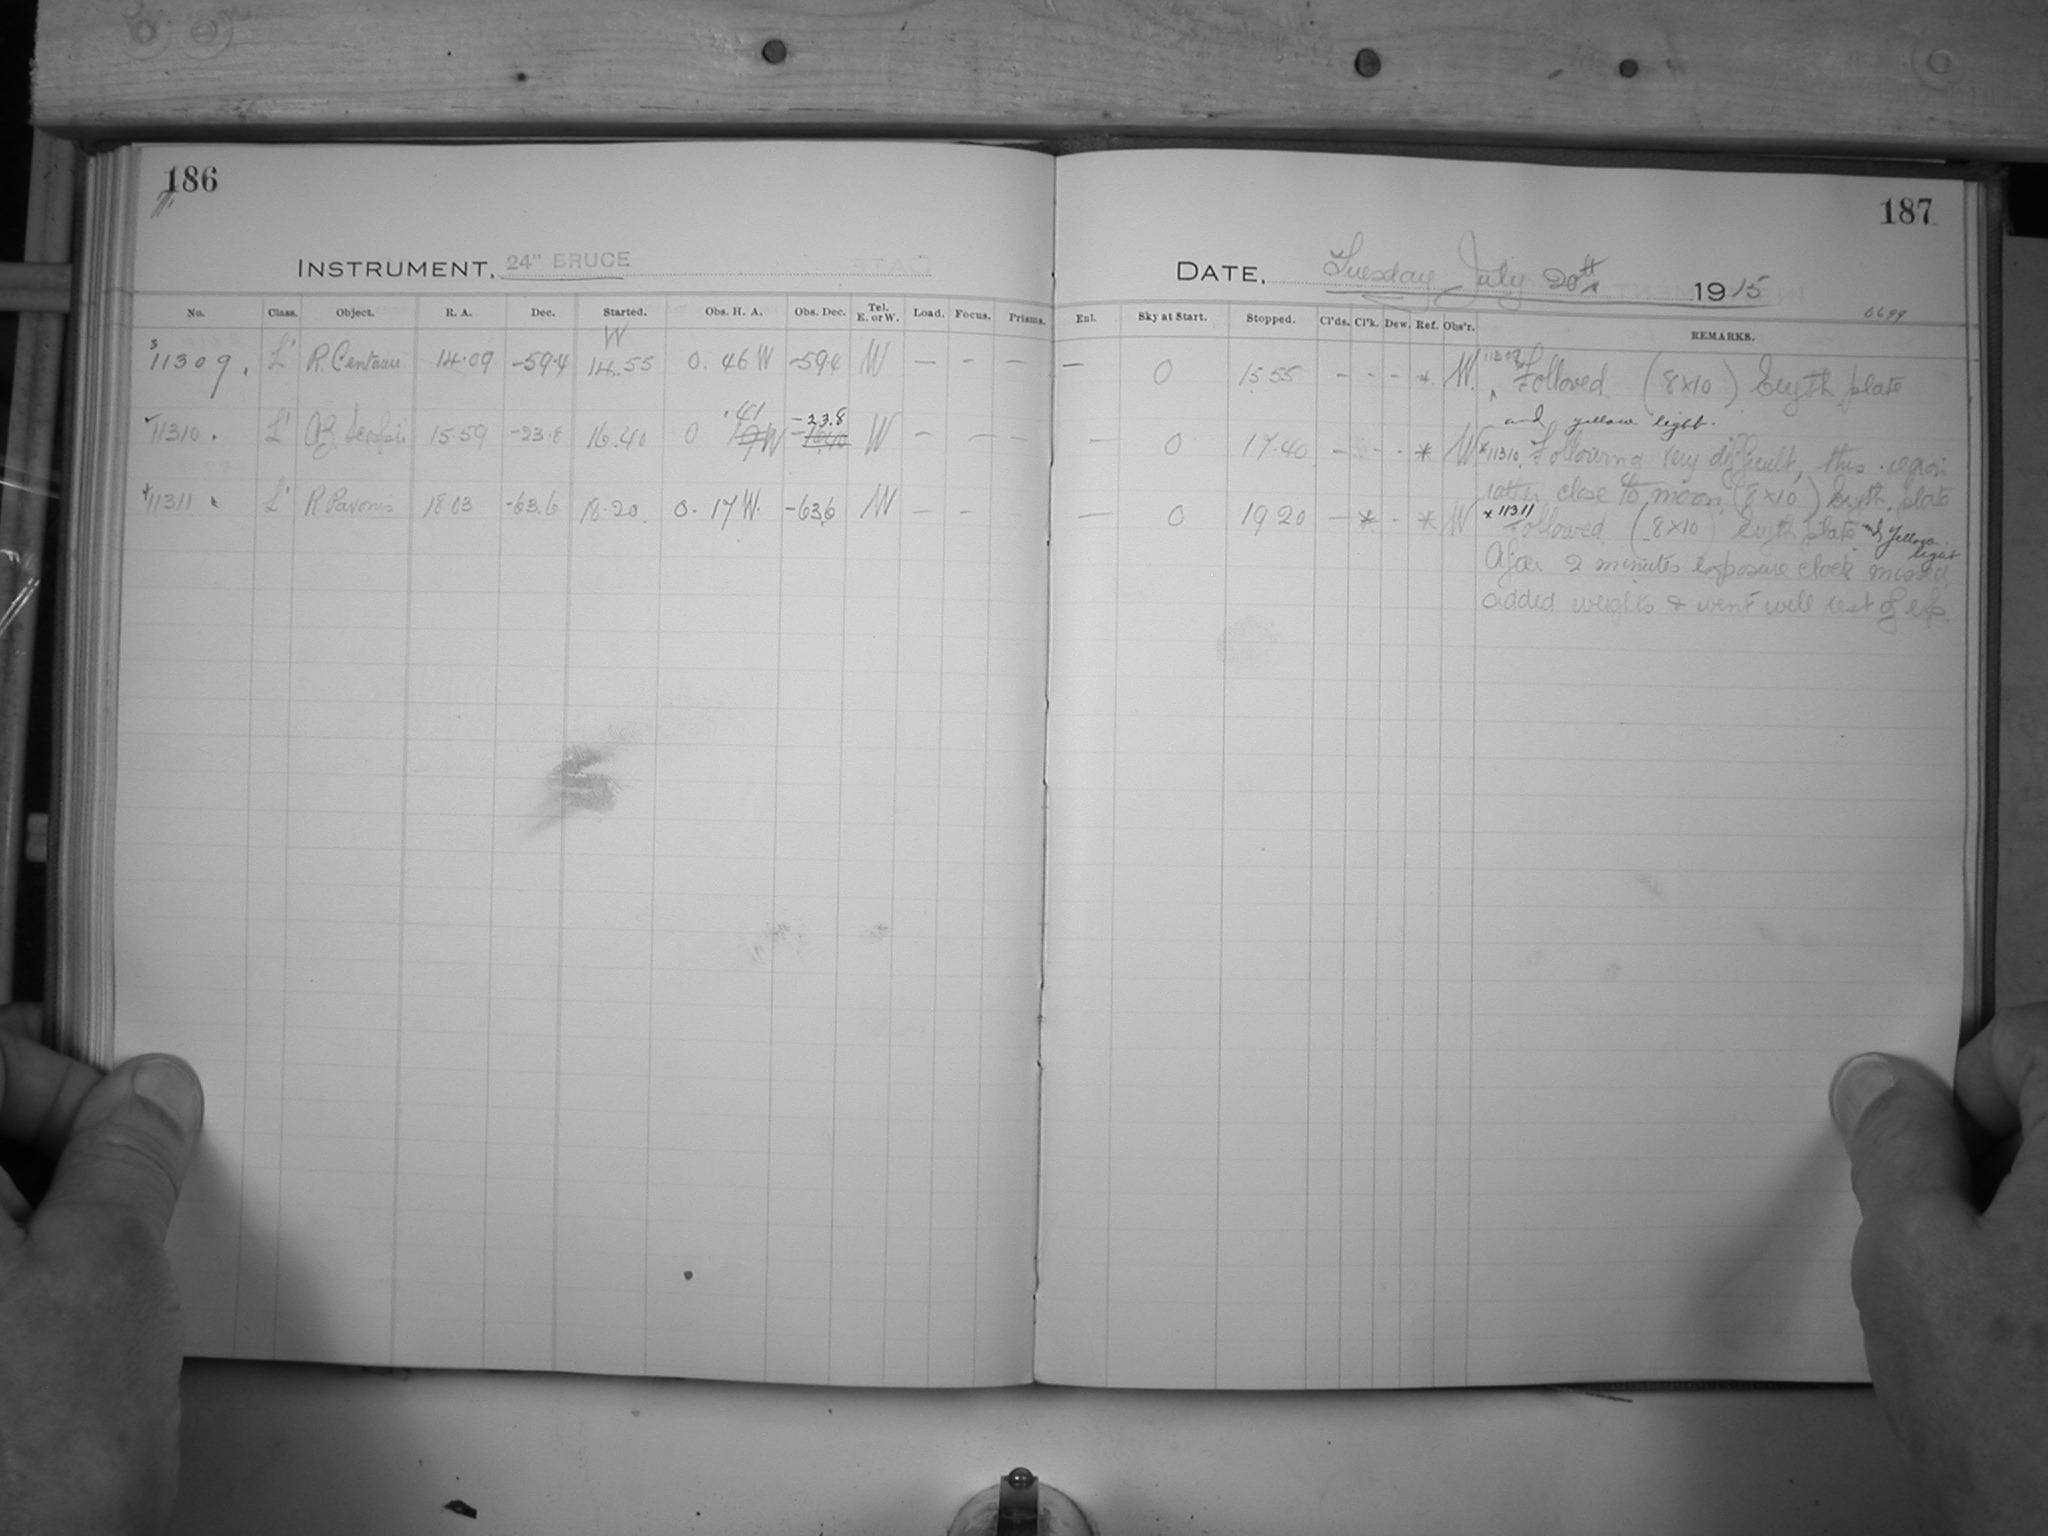 186
187
INSTRUMENT, 24" BRUCE
DATE, Tuesday July 20th 1915
0699
No. Class. Object. R. A. Dec. Started. Obs. H. A. Obs. Dec. Tel. E. or W. Load. Focus. Prisms.
Enl. Sky at Start. Stopped. Cl'ds. Cl'k. Dew. Ref. Obs'r. REMARKS.
W
11309. L' R. Centauri 14.09 -59.4 14.55 0. 46 W -594 W — - —
— 0 15 55 - - - * W. 11309 Followed (8x10) Eryth plate
and yellow light.
.41 -23.8
11310. L' Scorpii 15.59 -23.8 16.40 0 W W — — —
— 0 17.40 - - * W *11310. Following very difficult, this region
rather close to moon (8x10) Eryth. plate
11311 L' R Pavonis 18 03 -63.6 18.20. 0. 17 W. -636 W — — —
— 0 19 20 — * - * W * 11311 Followed (8x10) Eryth plate and yellow
light
After 2 minutes exposure clock missed,
added weights & went well rest of exp.